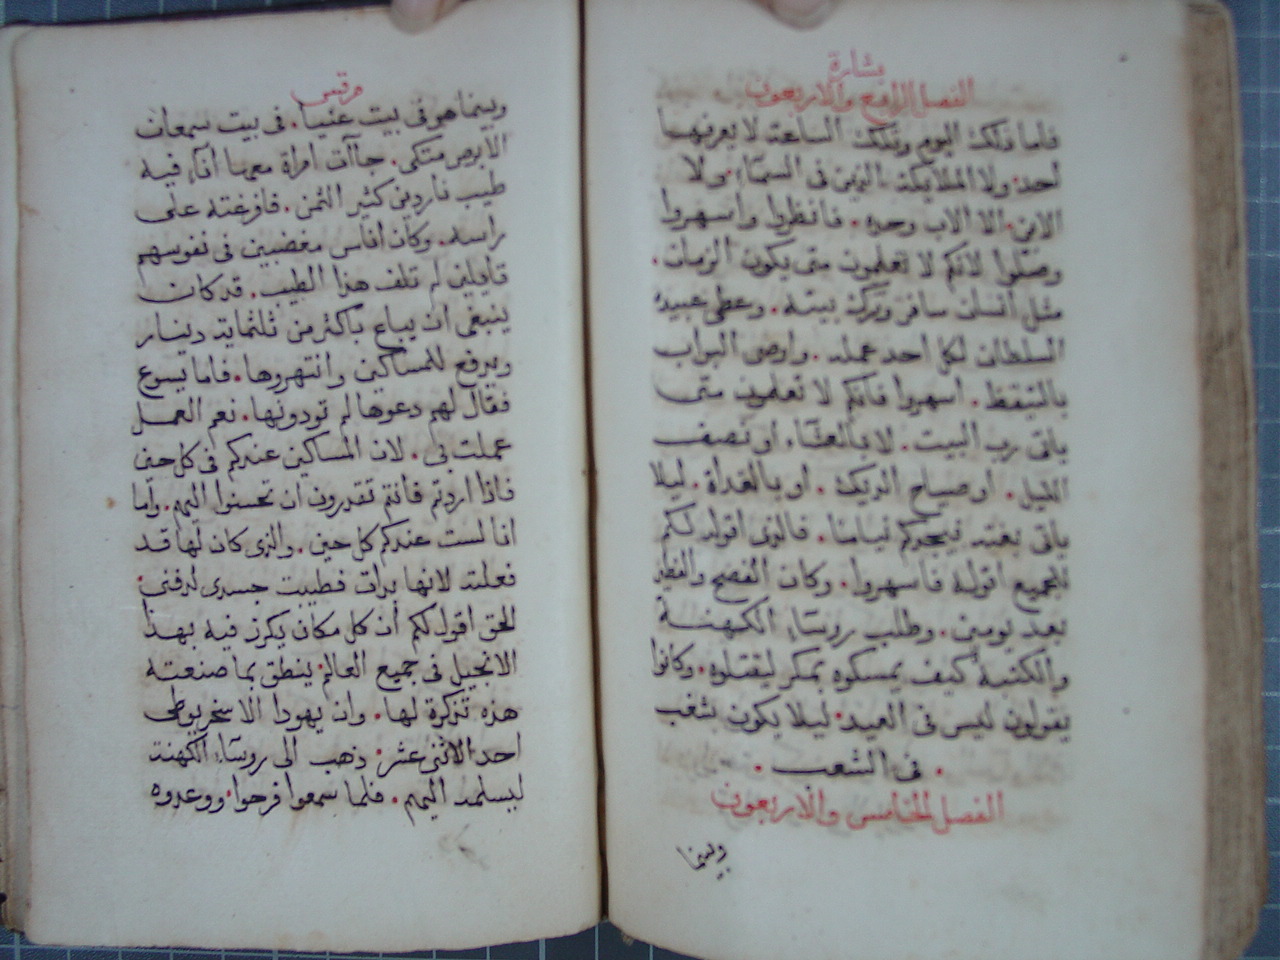 بشارة
الفصل الرابع والاربعون
فاما ذلك اليوم وتلك الساعة لا يعرفهما
احد. ولا الملايكة الذين فى السمآء ولا
الابن. الا الاب وحده. فانظروا واسهروا
وصلوا لانكم لا تعلمون متى يكون الزمان.
مثل انسان سافر وترك بيته. وعطى عبيده
السلطان لكل احد عمله. واوصى البواب
بالتيقظ. اسهروا فانكم لا تعلمون متى
ياتى رب البيت. لا بالعشآء او نصف
الليل. او صياح الديك. او بالغداة. ليلا
ياتى بغتة فيجدكم نياما. فالذى اقوله لكم
للجميع اقوله فاسهروا. وكان الفصح والفطير
بعد يومين. وطلب روسآء الكهنة
والكتبة كيف يمسكوه بمكر ليقتلوه. وكانوا
يقولون ليس فى العيد. ليلا يكون شغب
. فى الشعب .
الفصل الخامس والاربعون
وبينما
مرقس
وبينما هو فى بيت عنيا. فى بيت سمعان
الابرص متكى. جاآت امراة معها انآء فيه
طيب ناردين كثير الثمن. فافرغته على
راسه. وكان اناس مغضبين فى نفوسهم
قايلين لم تلف هذا الطيب. قد كان
ينبغى ان يباع باكثر من ثلثماية دينار
ويدفع للمساكين وانتهروها. فاما يسوع
فقال لهم دعوها لم توذونها. نعم العمل
عملت بى. لان المساكين عندكم فى كل حين
فاذا اردتم فانتم تقدرون ان تحسنوا اليهم. واما
انا لست عندكم كل حين. والذى كان لها قد
فعلت لانها بدات فطيبت جسدى لدفنى.
الحق اقول لكم أن كل مكان يكرز فيه بهذا
الانجيل فى جميع العالم. ينطق بما صنعته
هذه تذكرة لها. وان يهودا الاسخريوطى
احد الاثنى عشر. ذهب الى روسآء الكهنة
ليسلمه اليهم. فلما سمعوا فرحوا. ووعدوه